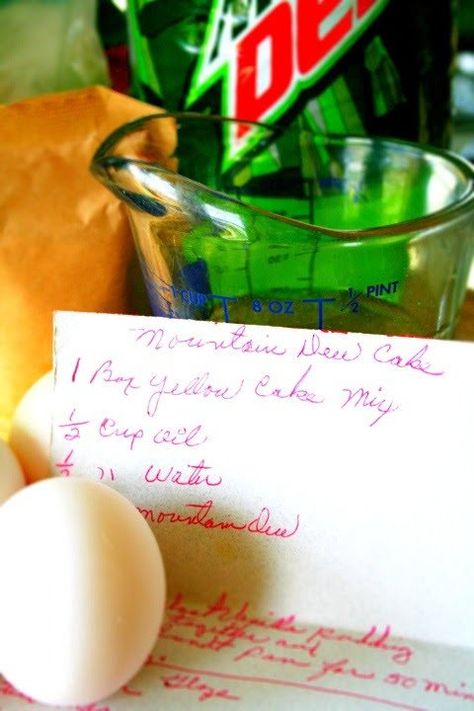 DEW
1 CUP
8 OZ
1/2 PINT
Mountain Dew Cake
1 Box Yellow Cake Mix
1/2 Cup oil
1/2 " Water
mountain Dew
pudding
together and
Pan for 50 min
Glaze